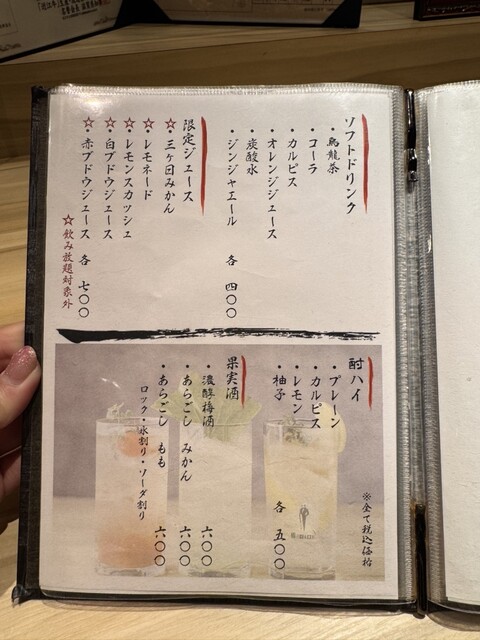 ソフトドリンク
・烏龍茶
・コーラ
・カルピス
・オレンジジュース
・炭酸水
・ジンジャエール 各 四〇〇
限定ジュース
☆・三ヶ日みかん
☆・レモネード
☆・レモンスカッシュ
☆・白ブドウジュース
☆・赤ブドウジュース 各 七〇〇
☆飲み放題対象外
酎ハイ
・プレーン
・カルピス
・レモン
・柚子 各 五〇〇
※全て税込価格
果実酒
・濃醇梅酒 六〇〇
・あらごし みかん 六〇〇
・あらごし もも 六〇〇
ロック・水割り・ソーダ割り